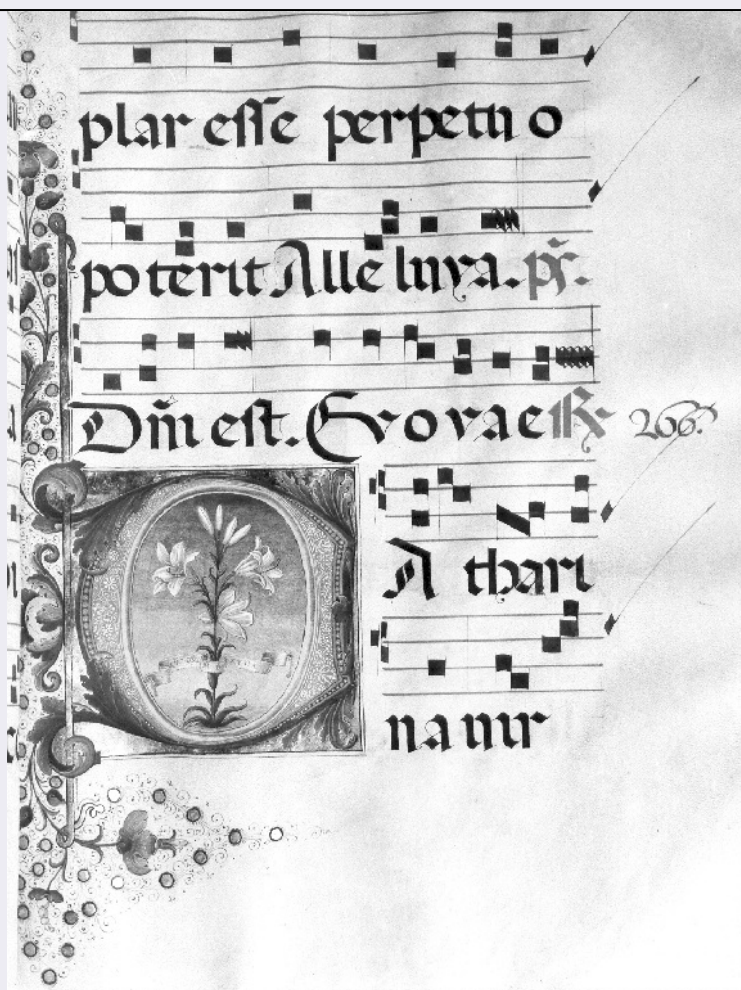 plar esse perpetu o
po terit Alle luya. ps.
Dñi est. Evovae ℟ 266.
C A thari
na uir